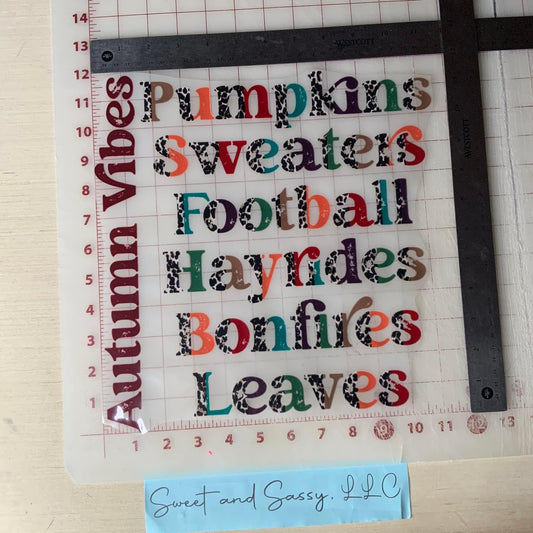 WESTCOTT
WESTCOTT
Autumn Vibes
Pumpkins
Sweaters
Football
Hayrides
Bonfires
Leaves
14
13
12
11
10
9
8
7
6
5
4
3
2
1
1 2 3 4 5 6 7 8 9 10 11 12 13
Sweet and Sassy, LLC